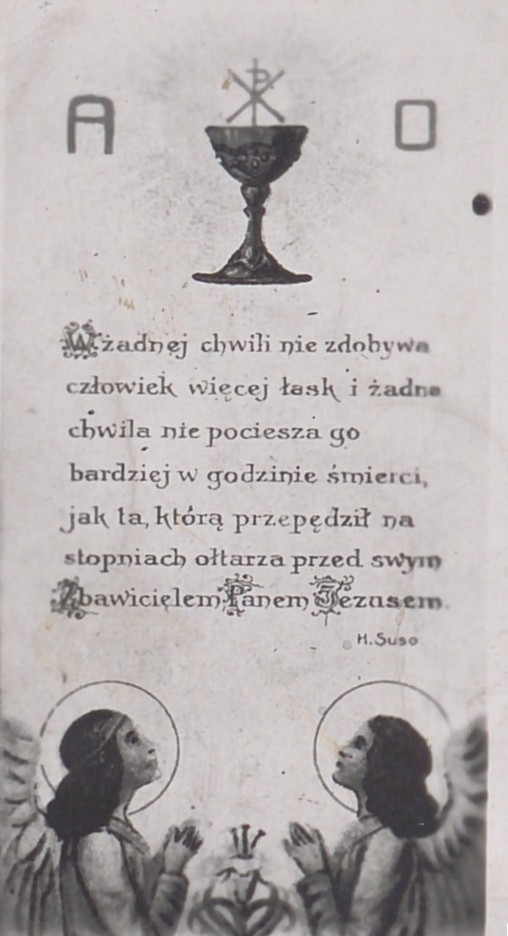 A O
W żadnej chwili nie zdobywa
człowiek więcej łask i żadna
chwila nie pociesza go
bardziej w godzinie śmierci,
jak ta, którą przepędził na
stopniach ołtarza przed swym
Zbawicielem Panem Jezusem.
H. Suso